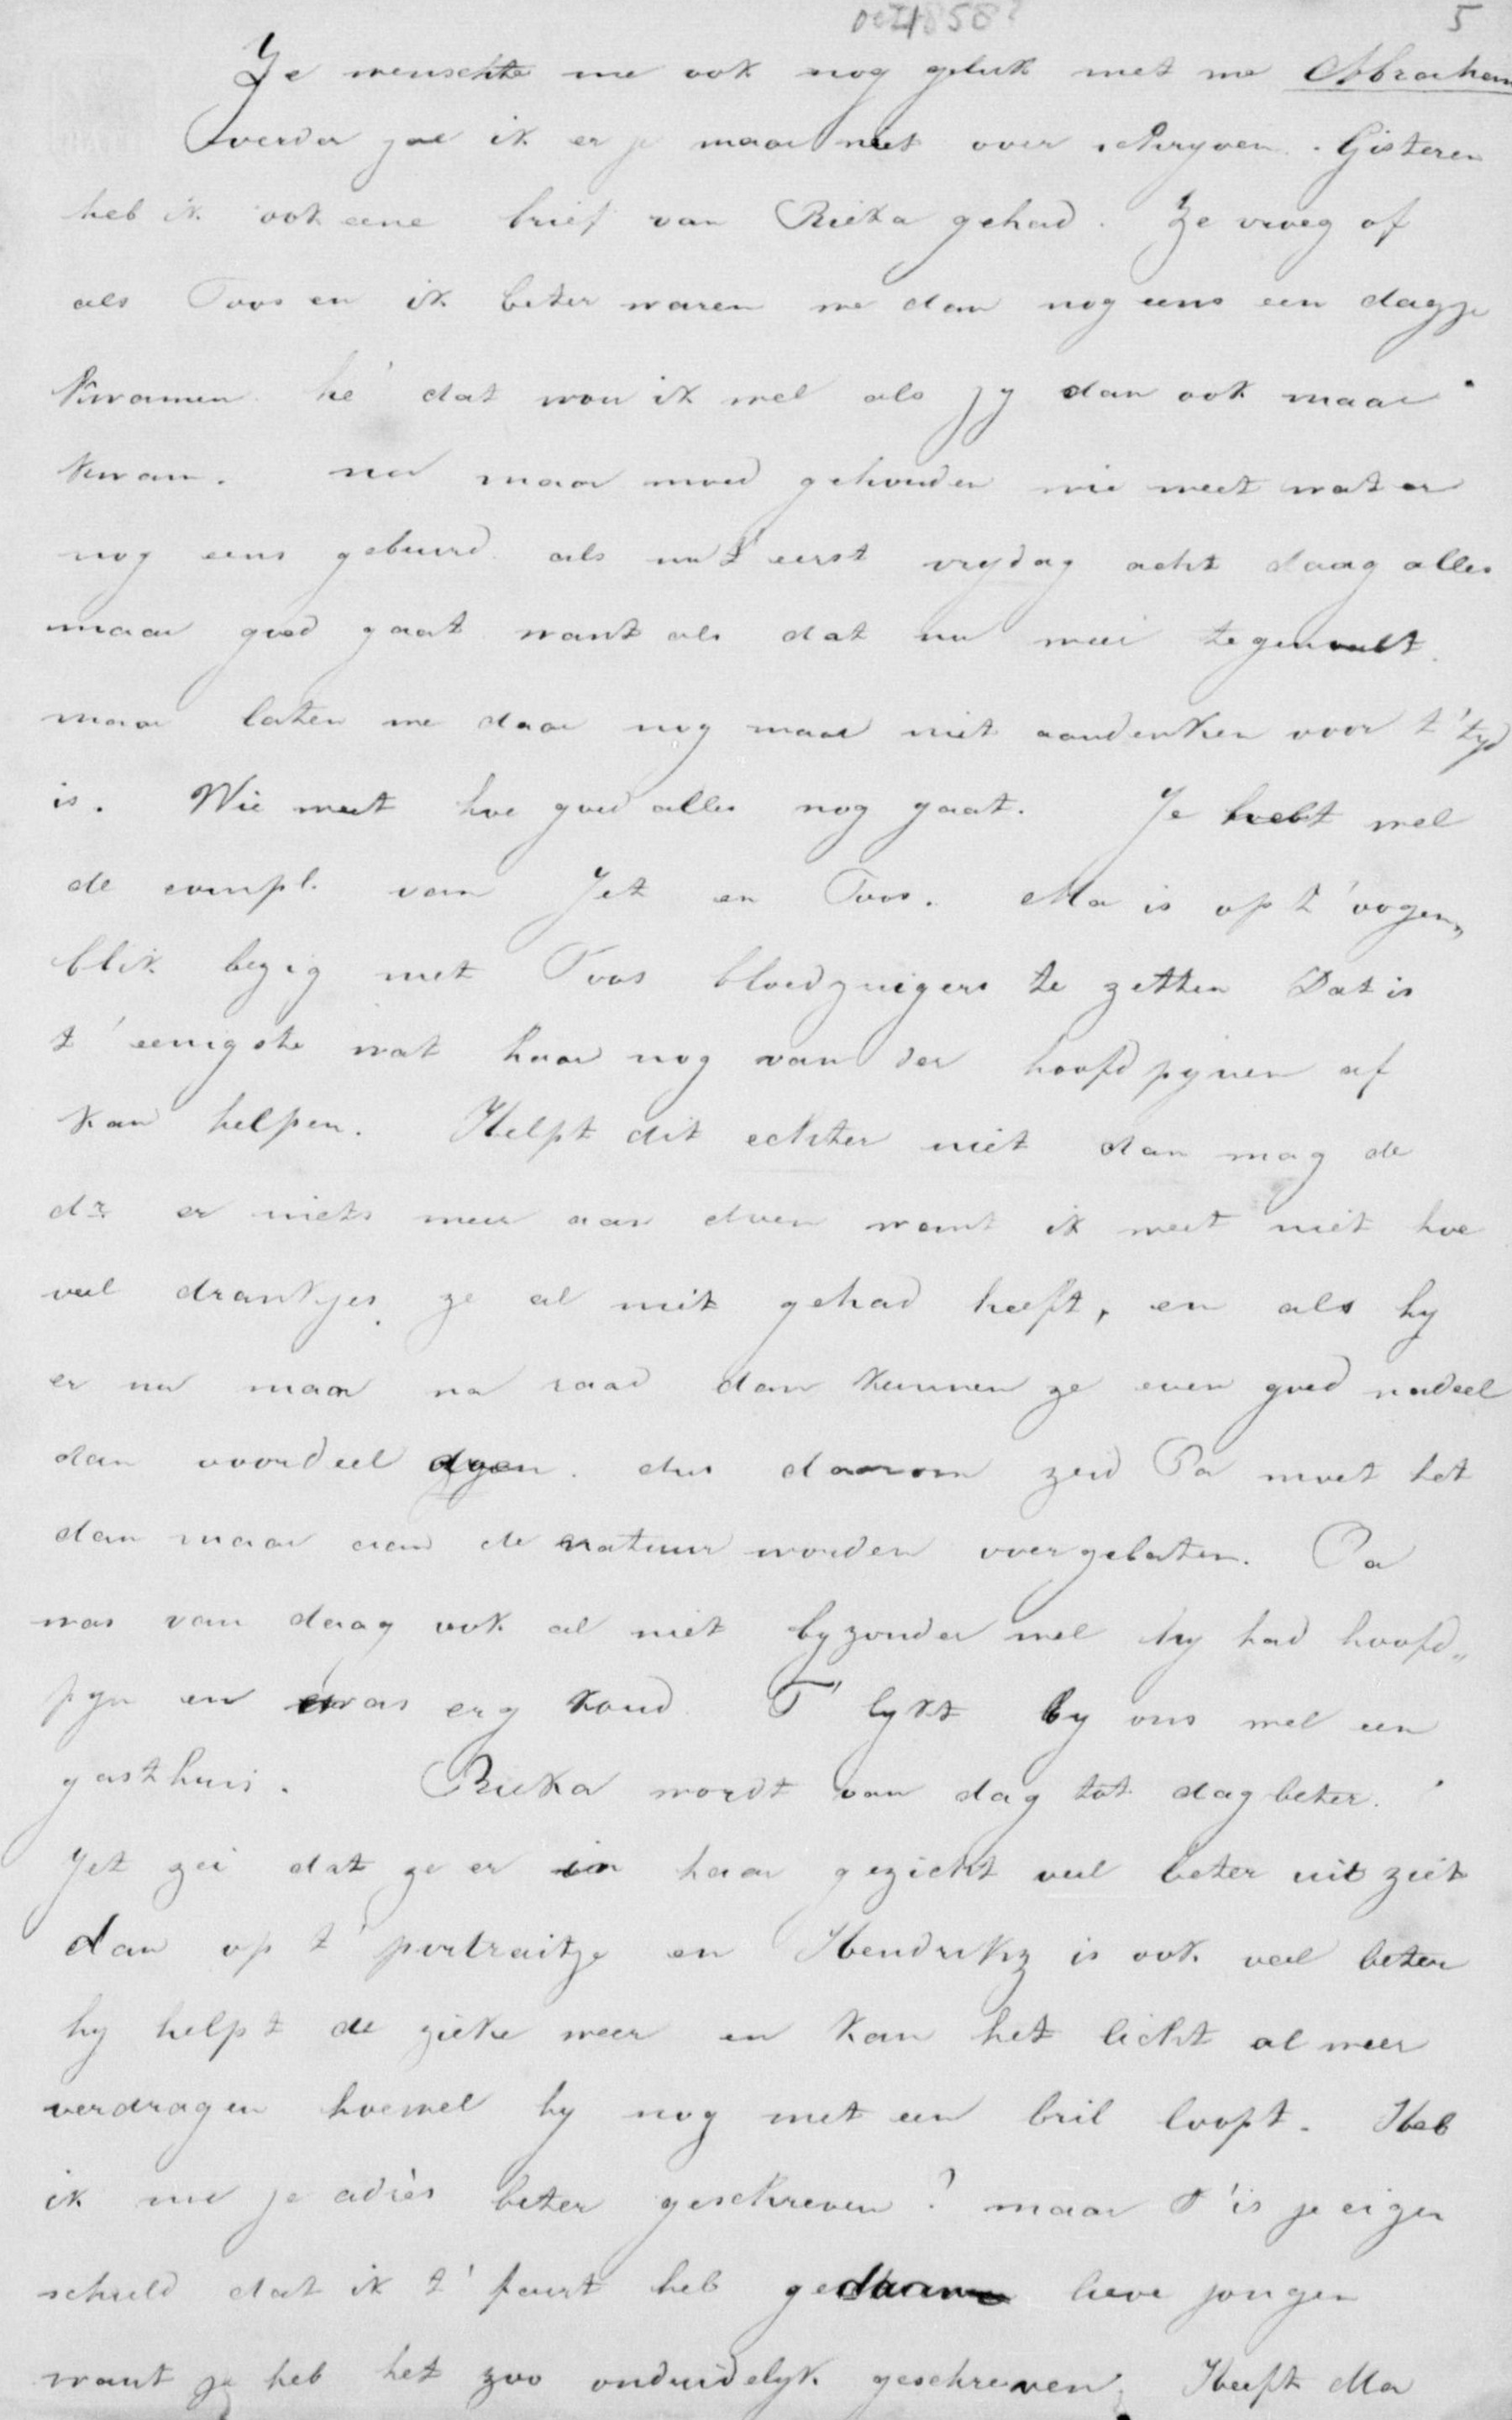 oct 1858? 5
Je wenschte me ook nog geluk met me Abraham
verder zal ik er je maar niet over schryven. Gisteren
heb ik ook eene brief van Rieka gehad. Ze vroeg of
als Toos en ik beter waren we dan nog eens een dagje
kwamen hé dat wou ik wel als jy dan ook maar
kwam. nu maar moed gehouden wie weet wat er
nog eens gebeurd als nu t' eerst vrydag acht daag alles
maar goed gaat want als dat nu weer tegenvalt.
maar laten we daar nog maar niet aandenken voor t' tyd
is. Wie weet hoe goed alles nog gaat. Je hebt wel
de compl. van Jet en Toos. Ma is op t' oogen„
blik bezig met Toos bloedzuigers te zetten Dat is
t' eenigste wat haar nog van der hoofdpynen af
kan helpen. Helpt dit echter niet dan mag de
dr. er niets meer aan doen want ik weet niet hoe
veel drankjes ze al niet gehad heeft, en als hy
er nu maar na raad dan kunnen ze even goed nadeel
dan voordeel doen. dus daarom zeid Pa moet het
dan maar aan de natuur worden overgelaten. Pa
was van daag ook al niet byzonder wel hy had hoofd„
pyn en was erg koud. T' lykt by ons wel een
gasthuis. Rieka wordt van dag tot dag beter.
Jet zei dat ze er in haar gezicht veel beter uit ziet
dan op t' portraitje en Hendrikz is ook veel beter
hy helpt de zieke weer en kan het licht al meer
verdragen hoewel hy nog met een bril loopt. Heb
ik nu je adrès beter geschreven? maar t' is je eigen
schuld dat ik t' fout heb gedaan lieve jongen
want je heb het zoo onduidelyk geschreven. Heeft Ma